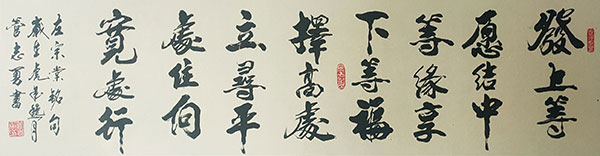 發上等
愿結中
等緣享
下等福
擇高處
立尋平
處住向
寬處行
左宗棠銘句
歲在虎年魏月
管志夏書